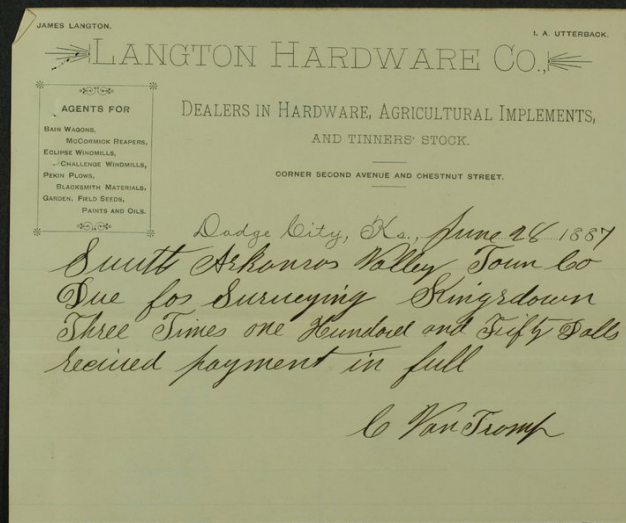 JAMES LANGTON.
I. A. UTTERBACK.
LANGTON HARDWARE CO.,
AGENTS FOR
BAIN WAGONS,
McCORMICK REAPERS,
ECLIPSE WINDMILLS,
CHALLENGE WINDMILLS,
PEKIN PLOWS,
BLACKSMITH MATERIALS,
GARDEN. FIELD SEEDS,
PAINTS AND OILS.
DEALERS IN HARDWARE, AGRICULTURAL IMPLEMENTS,
AND TINNERS' STOCK.
CORNER SECOND AVENUE AND CHESTNUT STREET.
Dodge City, Ks., June 28 1887
South Arkansas Valley Town Co
Due for Surveying Kingsdown
Three Times one Hundred and Fifty Dolls
recived payment in full
C Van Tromp